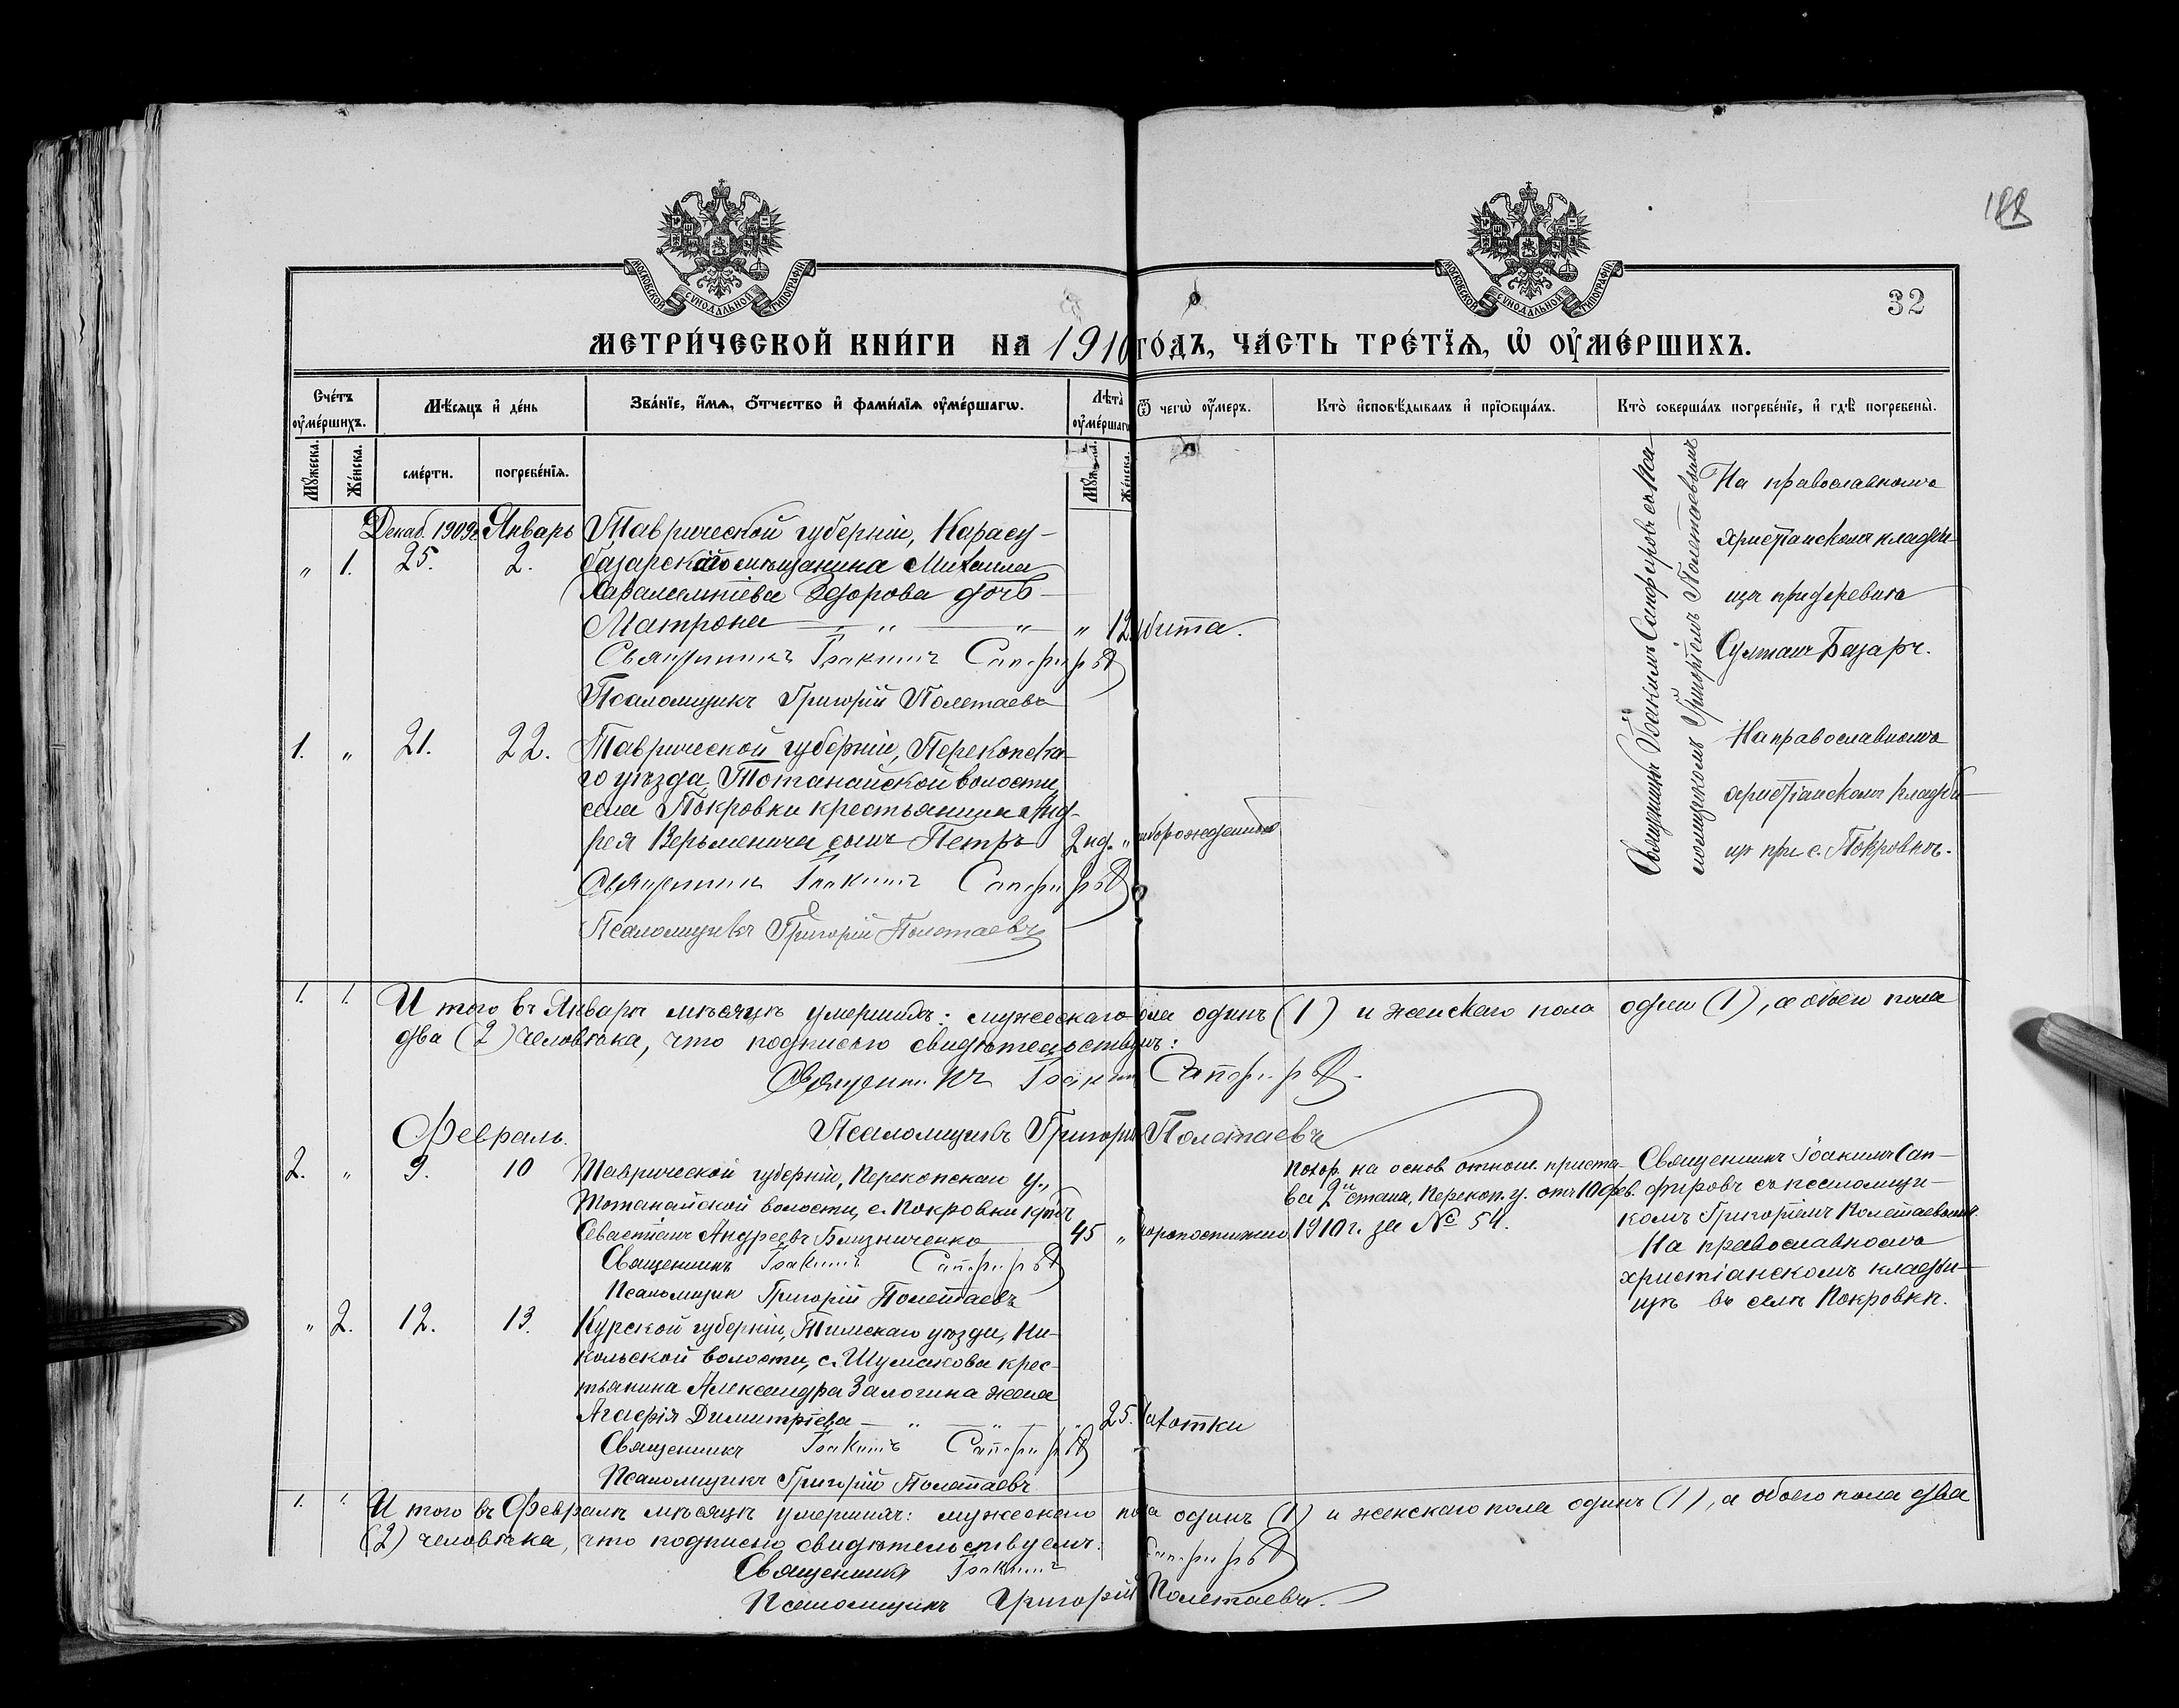 188
32
МОСКОВСКОЙ СѴНОДАЛЬНОЙ ТИПОГРАФІИ
МОСКОВСКОЙ СѴНОДАЛЬНОЙ ТИПОГРАФІИ
МЕТРИ́ЧЕСКОЙ КНИ́ГИ НА 1910 ГО́ДЪ, ЧА́СТЬ ТРЕ́ТІѦ, Ѡ҆ ОУ҆МЕ́РШИХЪ.
Сче́тъ оу҆ме́ршихъ.
Мѣ́сяцъ и҆ де́нь
Зва́нїе, и҆́мя, ѻ҆́тчество и҆ фами́лїя оу҆ме́ршагѡ.
Лѣта̀ оу҆ме́ршагѡ
Ѿ чегѡ̀ оу҆́меръ.
Кто̀ и҆сповѣ́дывалъ и҆ прїѡбща́лъ.
Кто̀ соверша́лъ погребе́нїе, и҆ гдѣ̀ погребены̀.
Му́жеска.
Же́нска.
сме́рти.
погребе́нїя.
Му́жеска.
Же́нска.
Декаб. 1909г. Январь
" 1. 25. 2.
Таврической губерніи, Карасу-
базарскаго мѣщанина Михаила
Харалампіева Здорова дочь
Матрона " "
" 12 убита.
Священникъ Іоакимъ Сапфировъ
Псаломщикъ Григорій Полетаевъ
Священникъ Іоакимъ Сапфировъ съ пса-
ломщикомъ Григоріемъ Полетаевымъ
На православномъ
христіанскомъ кладби-
щѣ при деревнѣ
Султанъ Базаръ.
1. " 21. 22.
Таврической губерніи, Перекопска-
го уѣзда, Тотанайской волости,
села Покровки крестьянина Анд-
рея Верьменича сынъ Петръ
2 нд. "
Священникъ Іоакимъ Сапфировъ
Псаломщикъ Григорій Полетаевъ
На православномъ
христіанскомъ кладби-
щѣ при с. Покровкѣ.
1. 1. И того въ Январѣ мѣсяцѣ умершихъ: мужескаго пола одинъ (1) и женскаго пола одна (1), а обоего пола
два (2) человѣка, что подписью свидѣтельствуемъ:
Священникъ Іоакимъ Сапфировъ
Псаломщикъ Григорій Полетаевъ
Февраль.
2. " 9. 10
Таврической губерніи, Перекопскаго у.,
Тотанайской волости, с. Покровки кр-нъ
Севастіанъ Андреевъ Близниченко
45 " скоропостижно
Священникъ Іоакимъ Сапфировъ
Псаломщик Григорій Полетаевъ
Похор. на основ. отнош. приста-
ва 2й стана, Перекоп. у. отъ 10 фев.
1910 г. за № 54.
Священникъ Іоакимъ Сап-
фировъ съ псаломщи-
комъ Григоріемъ Полетаевымъ.
На православномъ
христіанскомъ кладби-
щѣ въ селѣ Покровкѣ.
" 2. 12. 13.
Курской губерніи, Тимскаго уѣзда, Ни-
кольской волости, с. Шумакова крес-
тьянина Александра Залогина жена
Агафія Димитріева " "
" 25. Чахотки
Священникъ Іоакимъ Сапфировъ
Псаломщикъ Григорій Полетаевъ
1. 1. И того въ Февралѣ мѣсяцѣ умершихъ: мужескаго пола одинъ (1) и женскаго пола одинъ (1), а обоего пола два
(2) человѣка, что подписью свидѣтельствуемъ:
Священникъ Іоакимъ Сапфировъ
Псаломщикъ Григорій Полетаевъ.